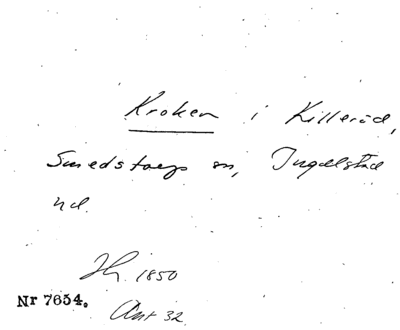 Kroken i Killeröd,
Smedstorps sn, Ingelstad
hd.
Jh. 1850
Nr 7654.
Ant 32